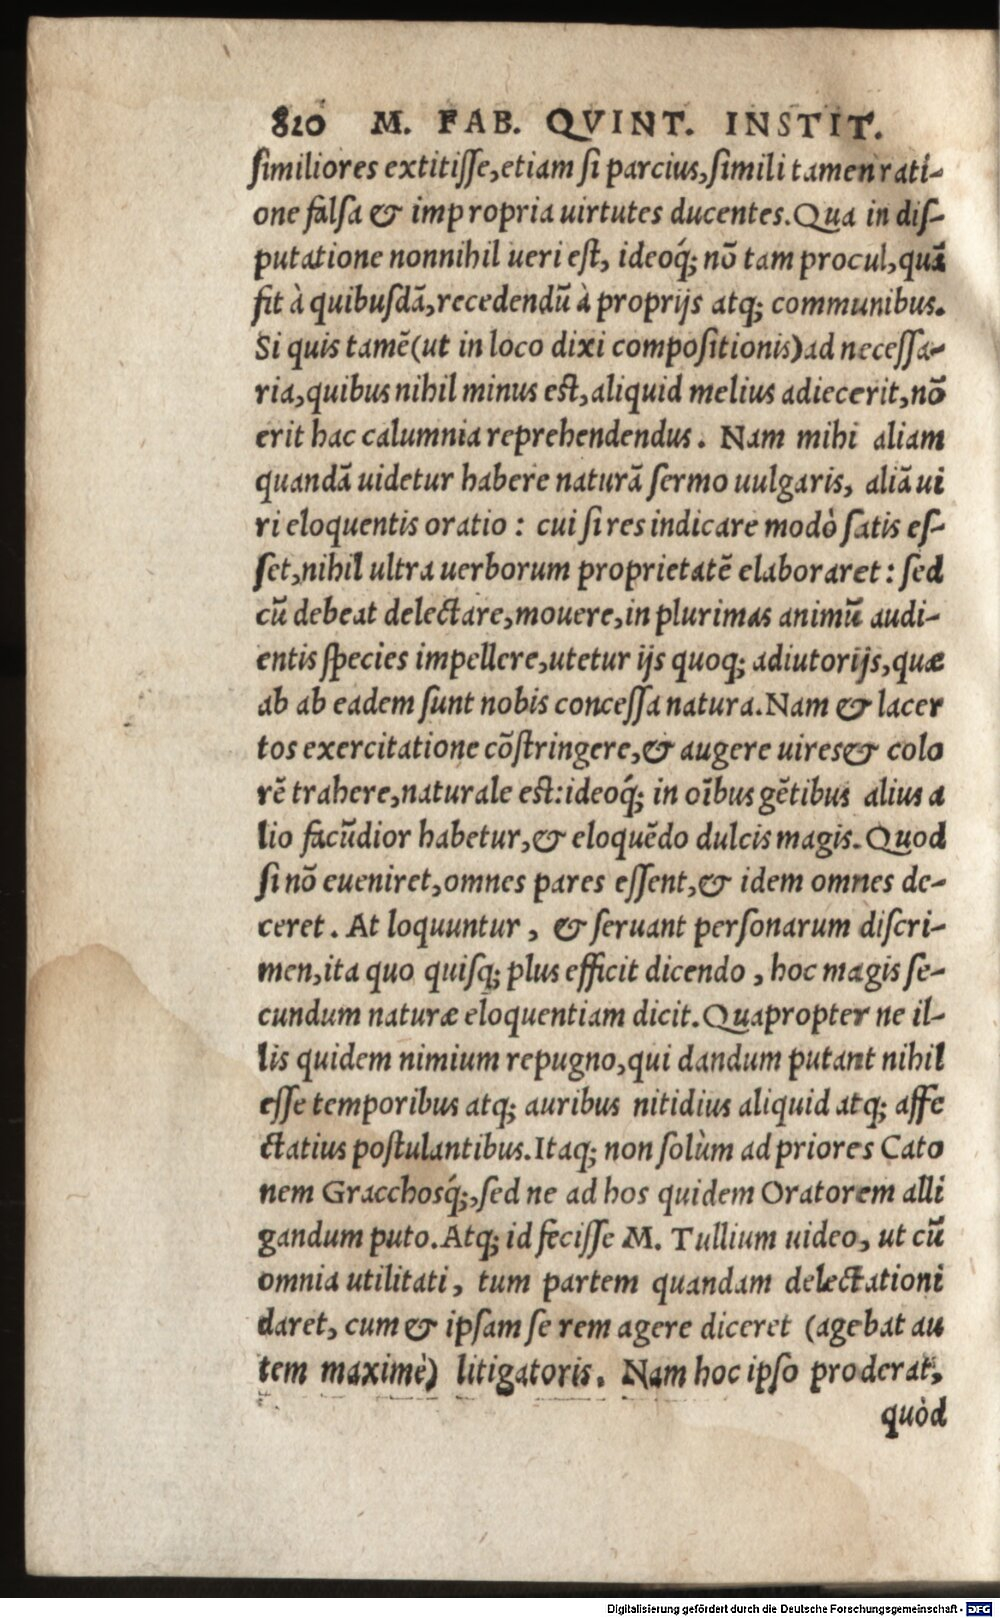 810 M. FAB. QVINT. INSTIT.
similiores extitisse, etiam si parcius, simili tamen rati-
one falsa & impropria uirtutes ducentes. Qua in dis-
putatione nonnihil ueri est, ideoq́; nõ tam procul, quã
fit à quibusdã, recedendũ à proprijs atq; communibus.
Si quis tamẽ (ut in loco dixi compositionis) ad necessa-
ria, quibus nihil minus est, aliquid melius adiecerit, nõ
erit hac calumnia reprehendendus. Nam mihi aliam
quandã uidetur habere naturã sermo uulgaris, aliã ui
ri eloquentis oratio: cui si res indicare modò satis es-
set, nihil ultra uerborum proprietatẽ elaboraret: sed
cũ debeat delectare, mouere, in plurimas animũ audi-
entis species impellere, utetur ijs quoq; adiutorijs, quæ
ab ab eadem sunt nobis concessa natura. Nam & lacer
tos exercitatione cõstringere, & augere uires & colo
rẽ trahere, naturale est: ideoq́; in oĩbus gẽtibus alius a
lio facũdior habetur, & eloquẽdo dulcis magis. Quod
si nõ eueniret, omnes pares essent, & idem omnes de-
ceret. At loquuntur, & seruant personarum discri-
men, ita quo quisq; plus efficit dicendo, hoc magis se-
cundum naturæ eloquentiam dicit. Quapropter ne il-
lis quidem nimium repugno, qui dandum putant nihil
esse temporibus atq; auribus nitidius aliquid atq; affe
ctatius postulantibus. Itaq; non solùm ad priores Cato
nem Gracchosq́;, sed ne ad hos quidem Oratorem alli
gandum puto. Atq; id fecisse M. Tullium uideo, ut cũ
omnia utilitati, tum partem quandam delectationi
daret, cum & ipsam se rem agere diceret (agebat au
tem maximè) litigatoris. Nam hoc ipso proderat,
quòd
Digitalisierung gefördert durch die Deutsche Forschungsgemeinschaft - DFG